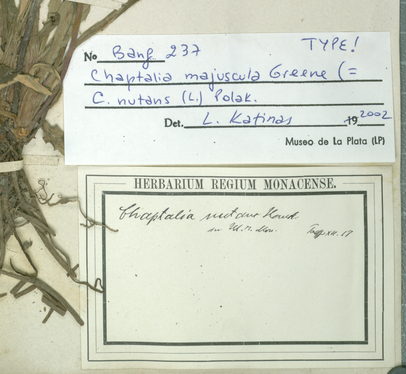 No Bang 237 TYPE!
Chaptalia majuscula Greene (=
C. nutans (L.) Polak.
Det. L. Katinas 19 2002
Museo de La Plata (LP)
HERBARIUM REGIUM MONACENSE.
Chaptalia nutans